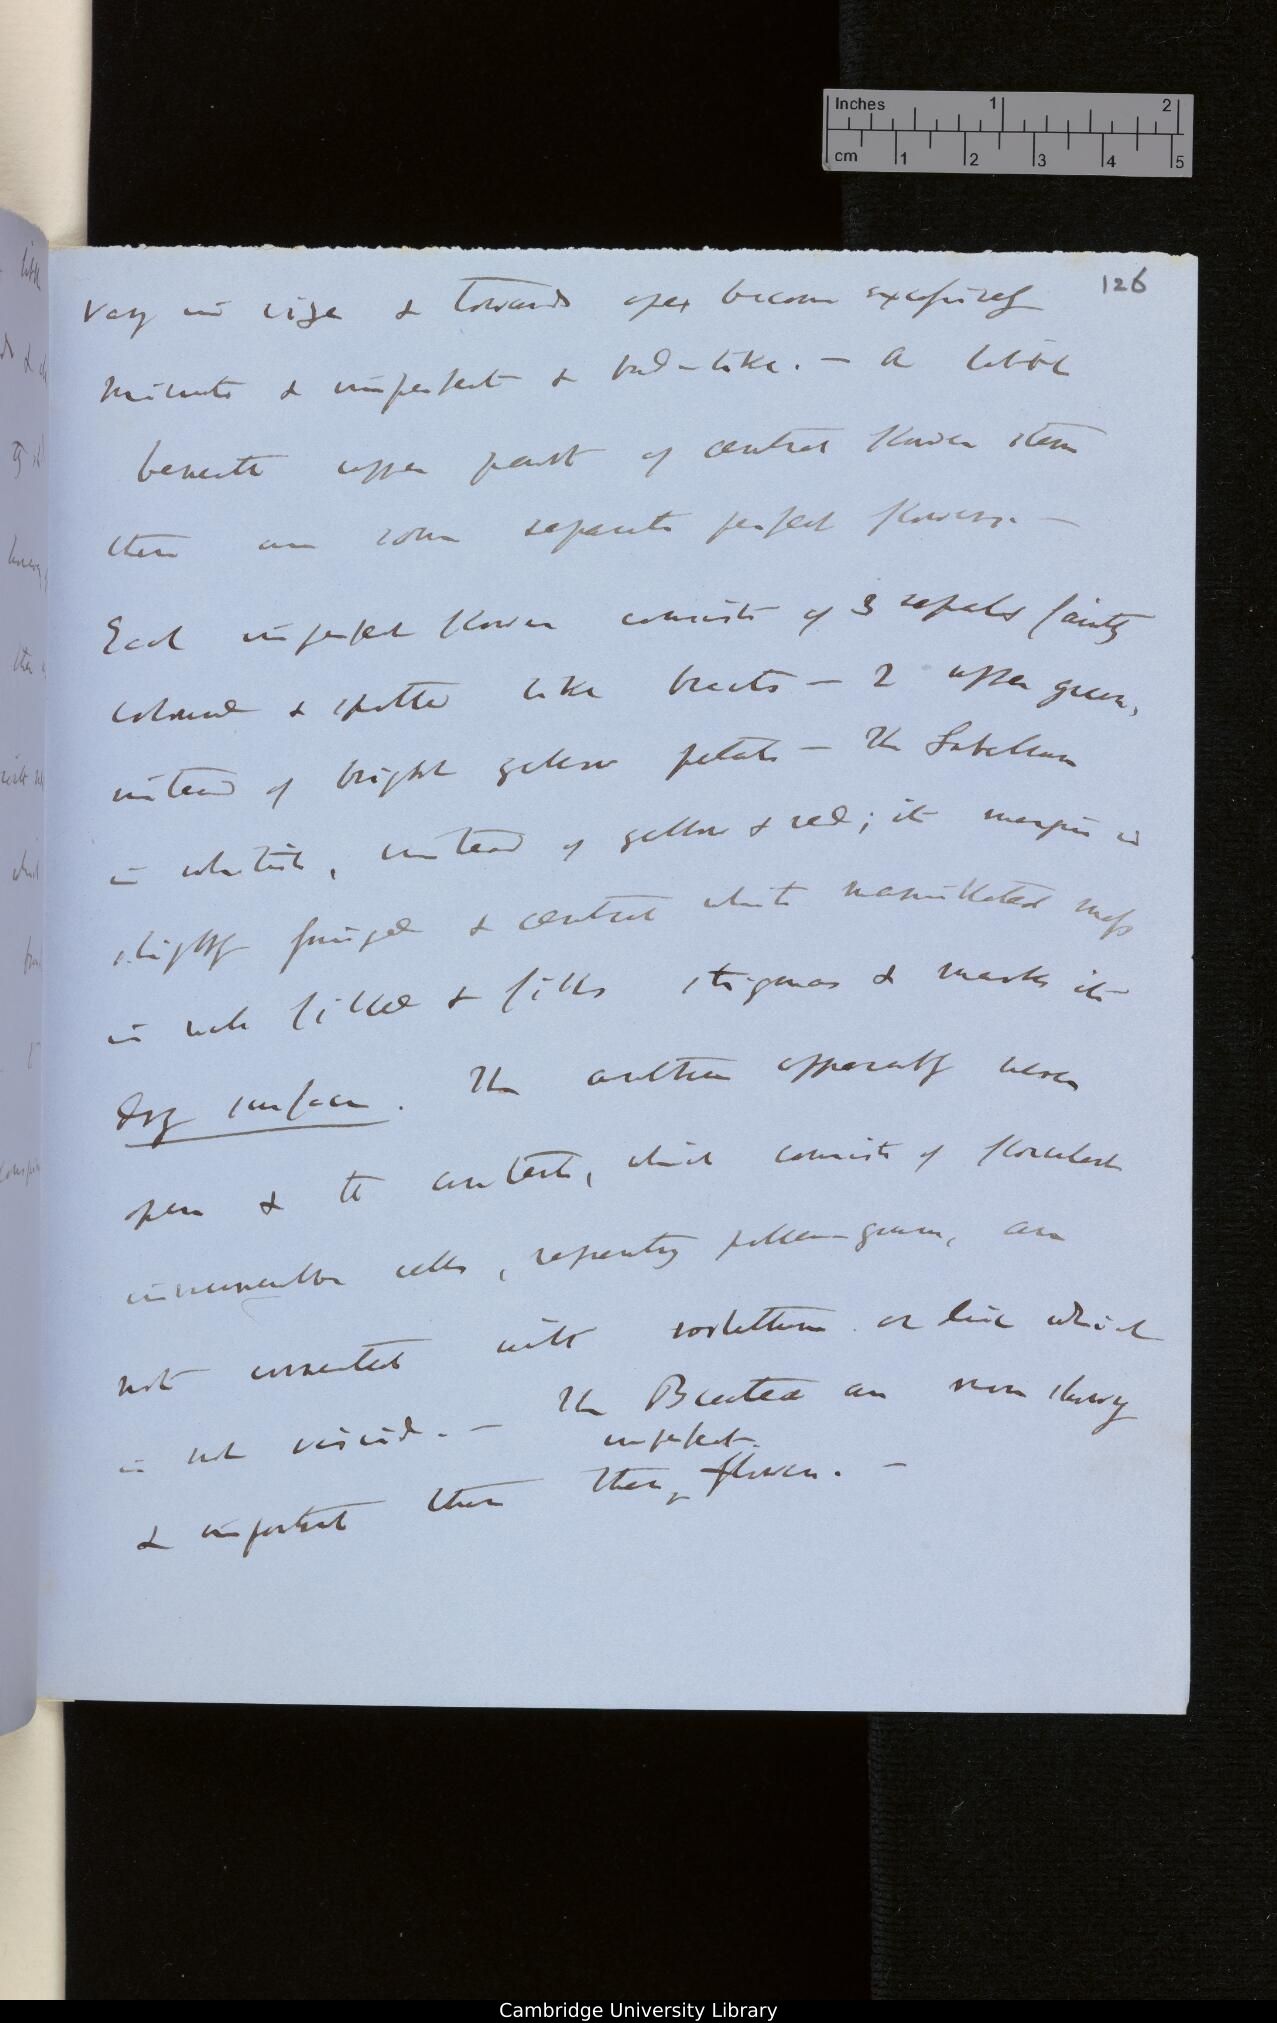 Inches 1 2
cm 1 2 3 4 5
126
vary in size & towards apex become excessively
minute & imperfect & bud-like. — A little
beneath upper part of central flower stem
there are some separate perfect flowers. —
Each imperfect flower consists of 3 sepals faintly
coloured & spotted like bracts — 2 upper green,
instead of bright yellow petals — The Labellum
is whitish, instead of yellow & red; its margin is
slightly fringed & central white mamillated mass
is well filled & fills stigmas & marks its
dry surface. The anther apparently never
open & the contents, which consists of
innumerable cells, pollen-grains, are
not connected with rostellum or line which
is not viscid. — The Bractea are more showy
imperfect
& important than these flowers. —
Cambridge University Library